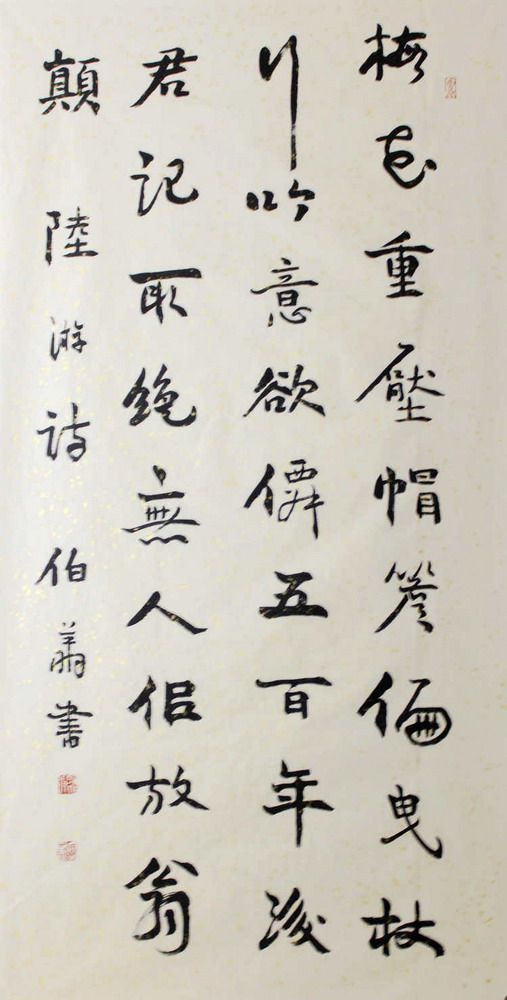 梅花重壓帽簷偏曳杖
行吟意欲僊五百年後
君記取絕無人佀放翁
顛 陸游詩 伯書